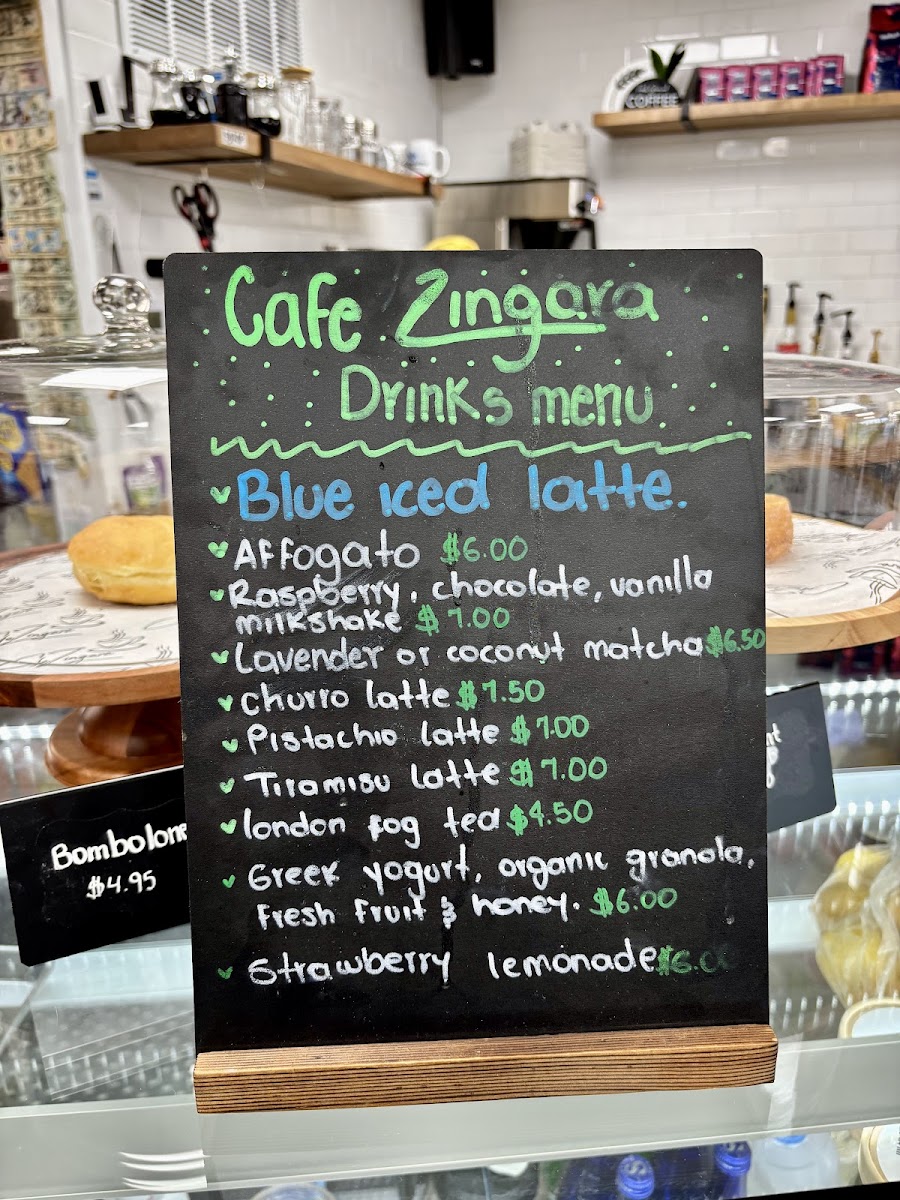 COFFEE
Cafe Zingara
Drinks menu
Blue iced latte.
Affogato $6.00
Raspberry, chocolate, vanilla
milkshake $7.00
Lavender or coconut matcha $6.50
churro latte $7.50
Pistachio latte $7.00
Tiramisu Latte $7.00
london fog tea $4.50
Greek yogurt, organic granola,
fresh fruit & honey. $6.00
Strawberry lemonade $6.00
Bombolone
$4.95